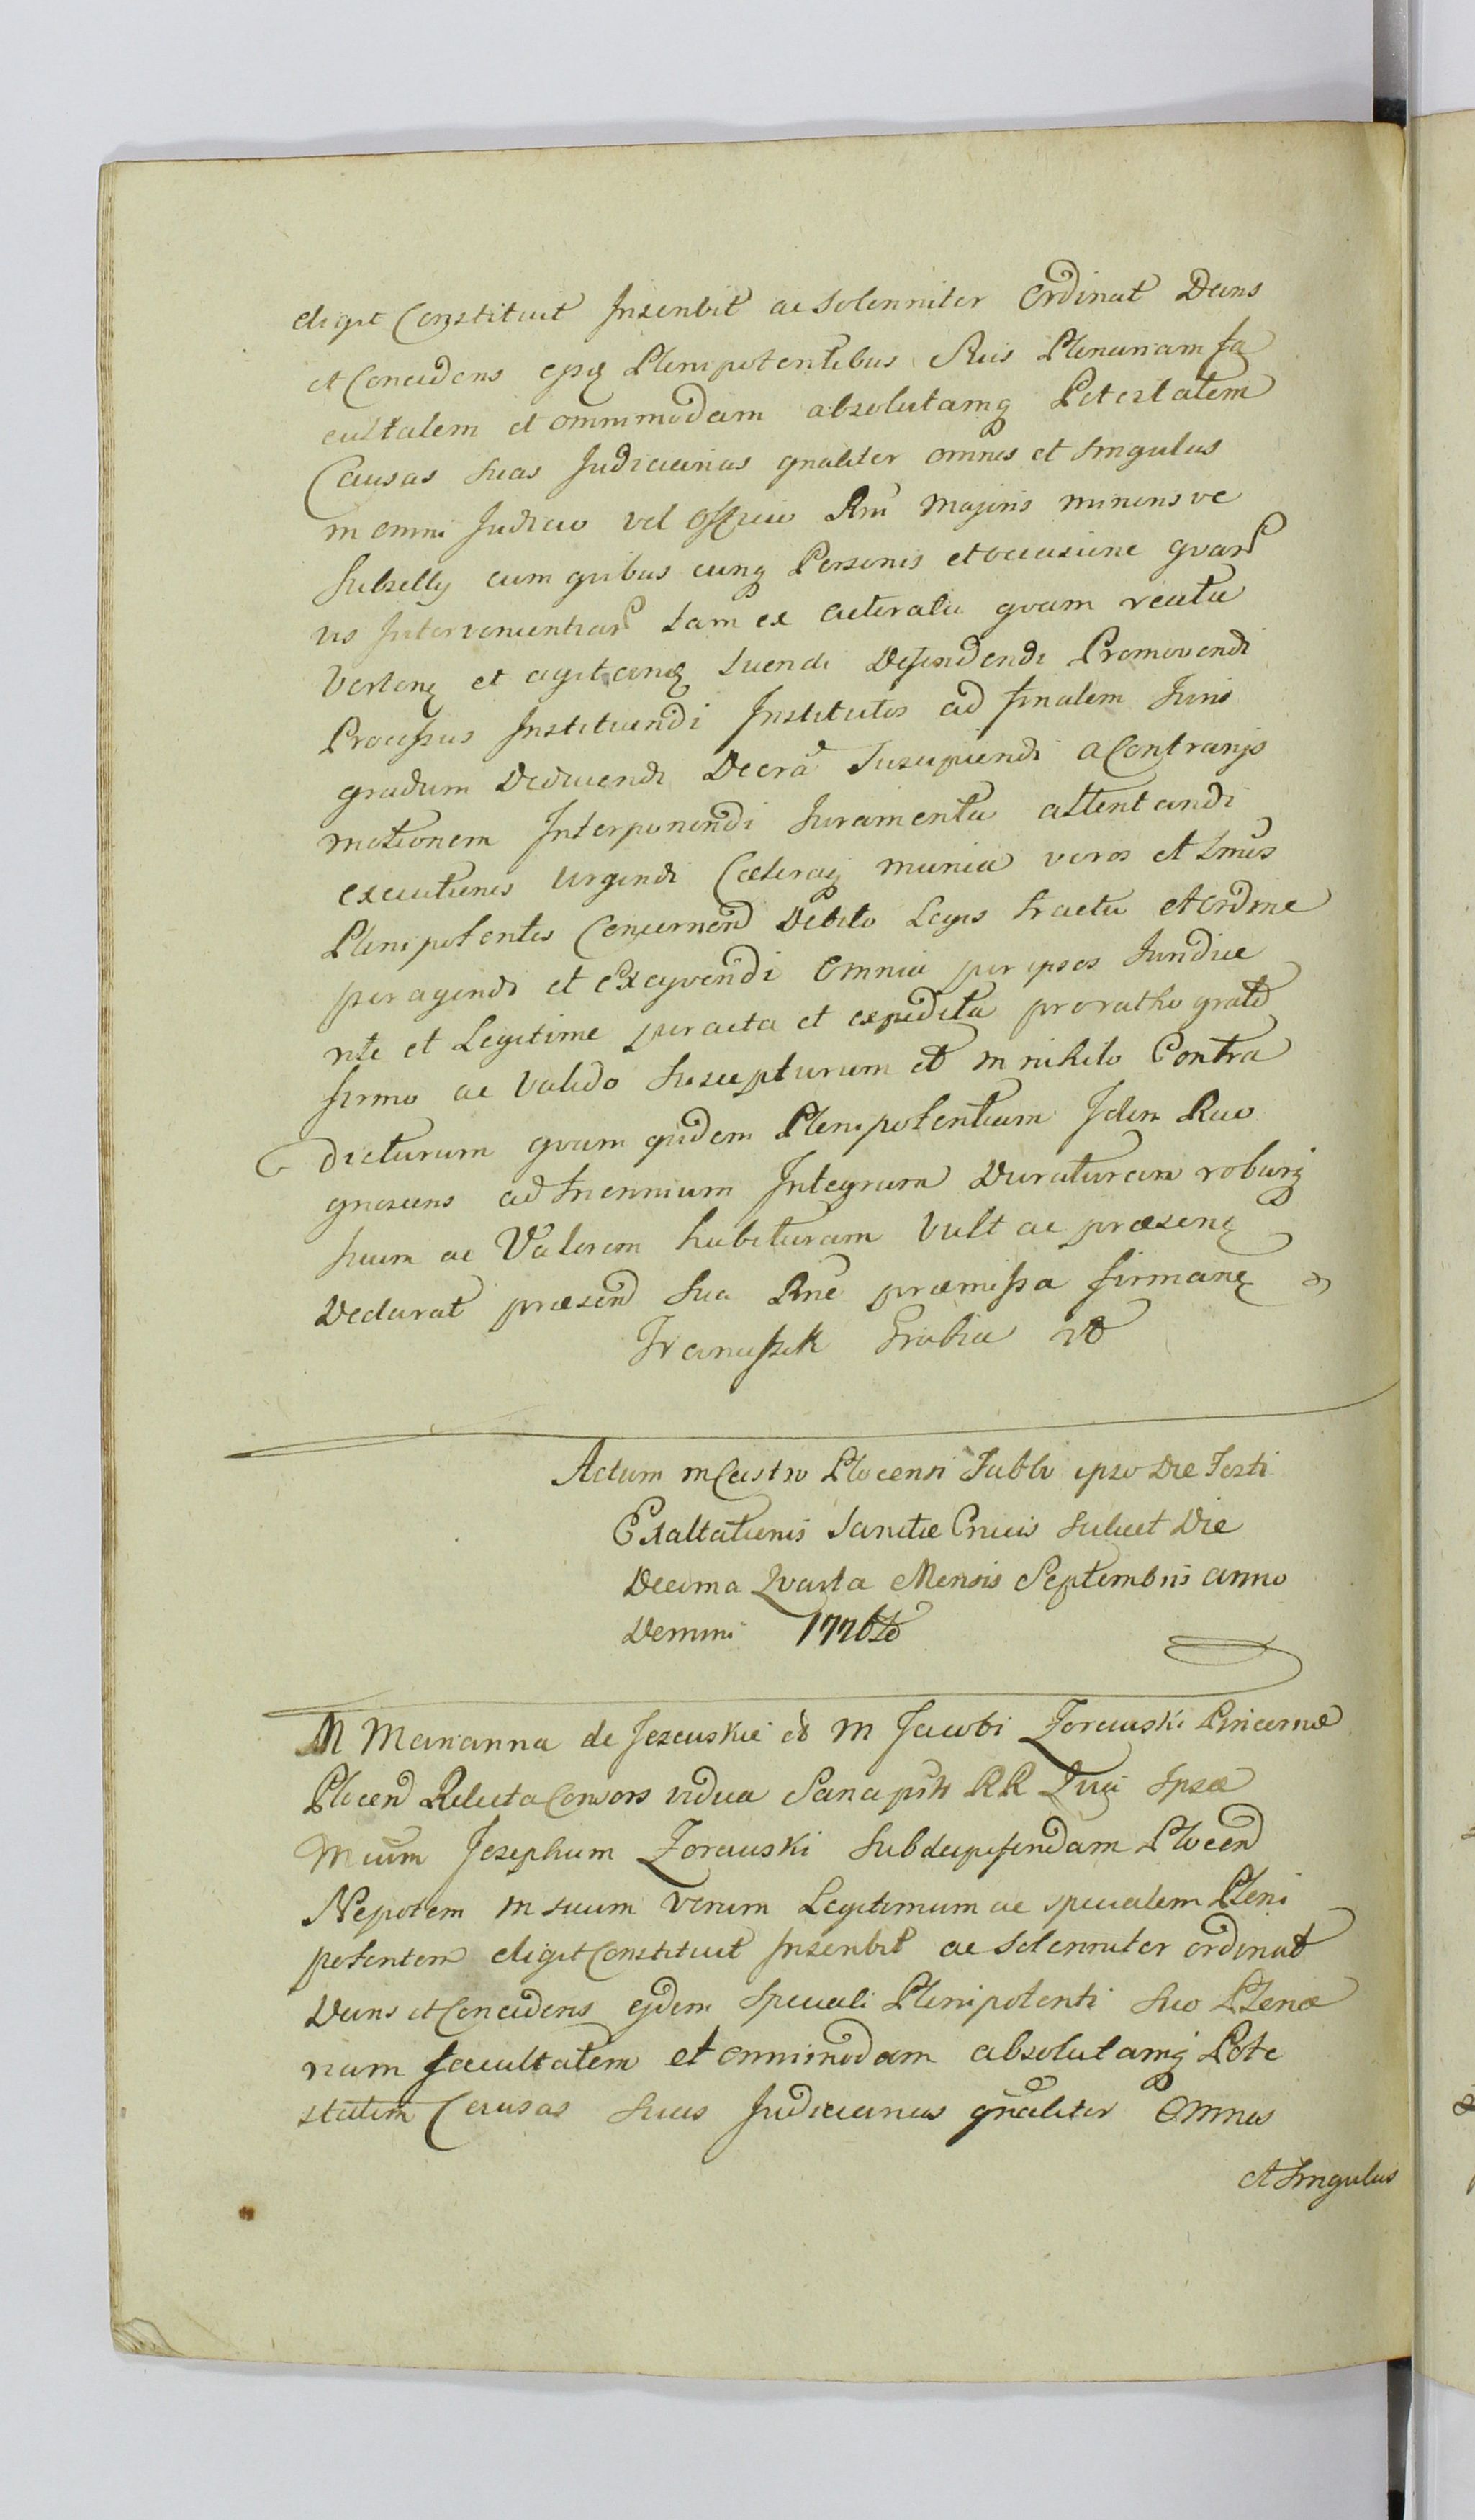 eligit Constituit Inscribit ac Solenniter Ordinat Dans
et Concedens ejsq Plenipotentibus Suis Plenariam fa
cultatem et omnimodam absolutamq Potestatem
Causas suas Judiciarias gnaliter omnes et Singulas
in omni Judicio vel Officio Rni majoris minorisve
Subsellij cum quibus cunq Personis et occasione quar
vis Intervenientiar tam ex actoratu quam reatu
Verten et agitanđ tuendi Defendendi Promovendi
Processus Instituendi Institutos ad finalem Juris
gradum Deducendi Decrā Suscipiendi a Contrarijs
motionem Interponendi Juramenta attentandi
executiones Urgendi Cæteraq munia veros et Lmos
Plenipotentes Concernenđ Debito Legis tractu et ordine
peragendi et Exeqvendi Omnia per ipsos Juridice
rite et Legitime peracta et expedita pro ratho grato
firmo ac Valido Suscepturum et in nihilo Contra
dicturum quam quidem Plenipotentiam Idem Reco
gnoscens ad triennium Integrum Duraturam roburq
suum ac Valorem habituram Vult ac præsen
Declarat præsenđ Sua Rne præmissa firman
Franciszek Grabia
Actum in Castro Plocensi Sabbo ipso Die Festi
Exaltationis Sanctæ Crucis Scilicet Die
Decima Qvarta Mensis Septembris anno
Domini 1776to
M Marianna de Jezewskie M Jacobi Zorawski Pincernæ
Plocenđ Relicta Consors vidua Sana RR Quia Ipsa
Mcum Josephum Zorawski Subdapiferidam Plocenđ
Nepotem in suum verum Legitimum ac specialem Pleni
potentem eligit Constituit Inscribit ac Solenniter ordinat
Dans et Concedens ejdem Speciali Plenipotenti Suo Plena
riam facultatem et omnimodam absolutamq Pote
statem Causas Suas Judiciarias gnaliter Omnes
et Singulas